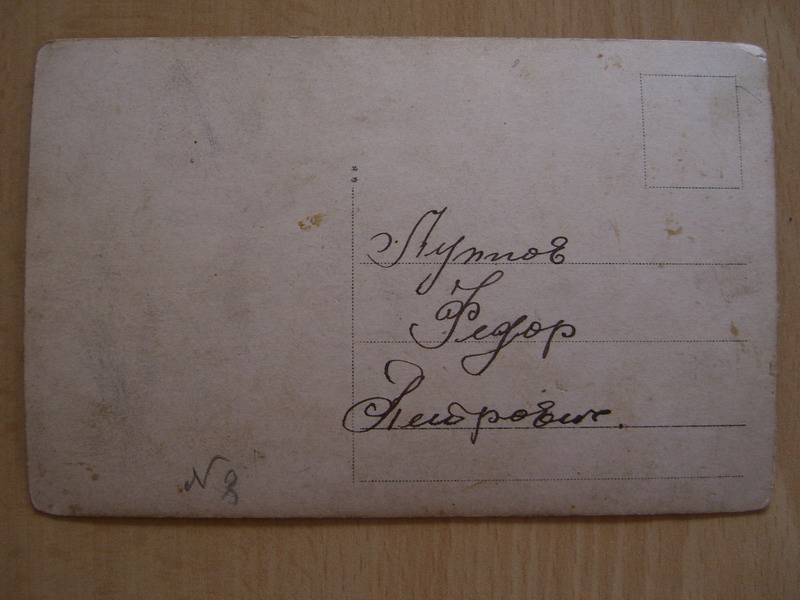 Луппов
Федор
Петрович.
N 8